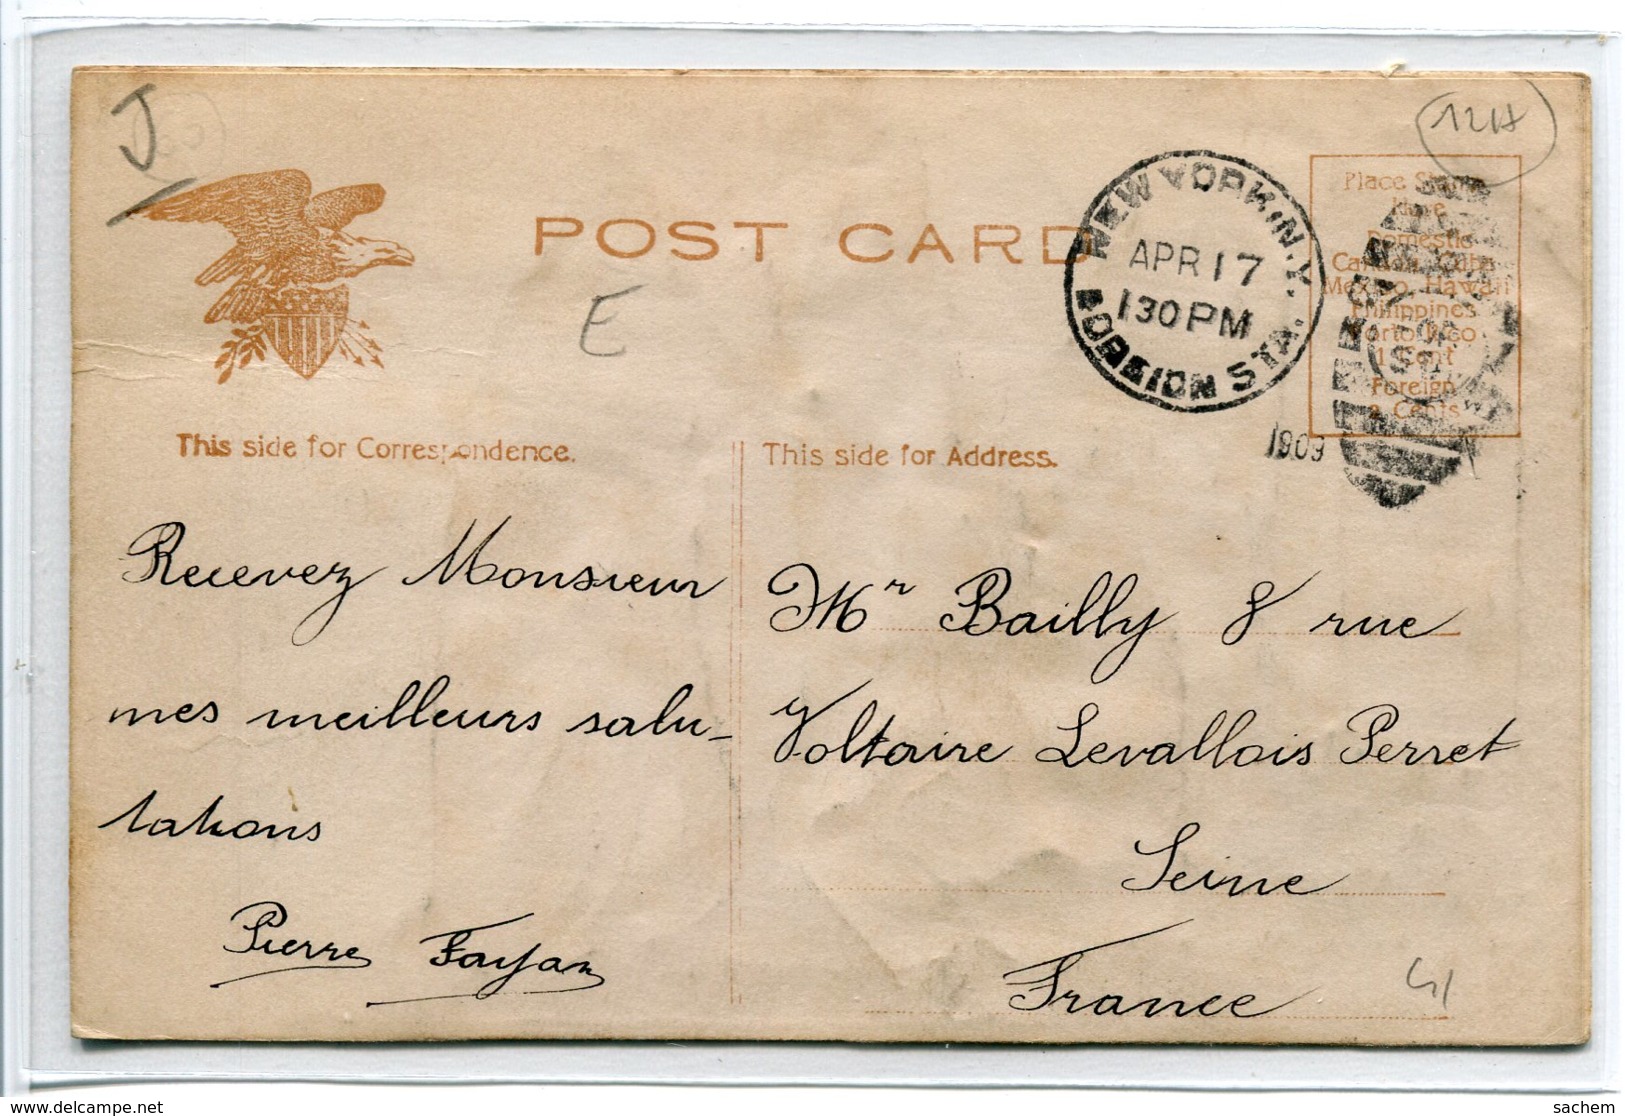 J
12A
POST CARD
E
NEW YORK, N.Y.
APR 17
130 PM
FOREIGN STA.
1909
Place Stamp
Here
Domestic
Canada, Cuba
Mexico, Hawaii
Philippines
Porto Rico
1 Cent
Foreign
2 Cents
This side for Correspondence.
This side for Address.
Recevez Monsieur
mes meilleurs salu-
tations
Pierre Fayan
Mr Bailly 8 rue
Voltaire Levallois Perret
Seine
France
delcampe.net
sachem